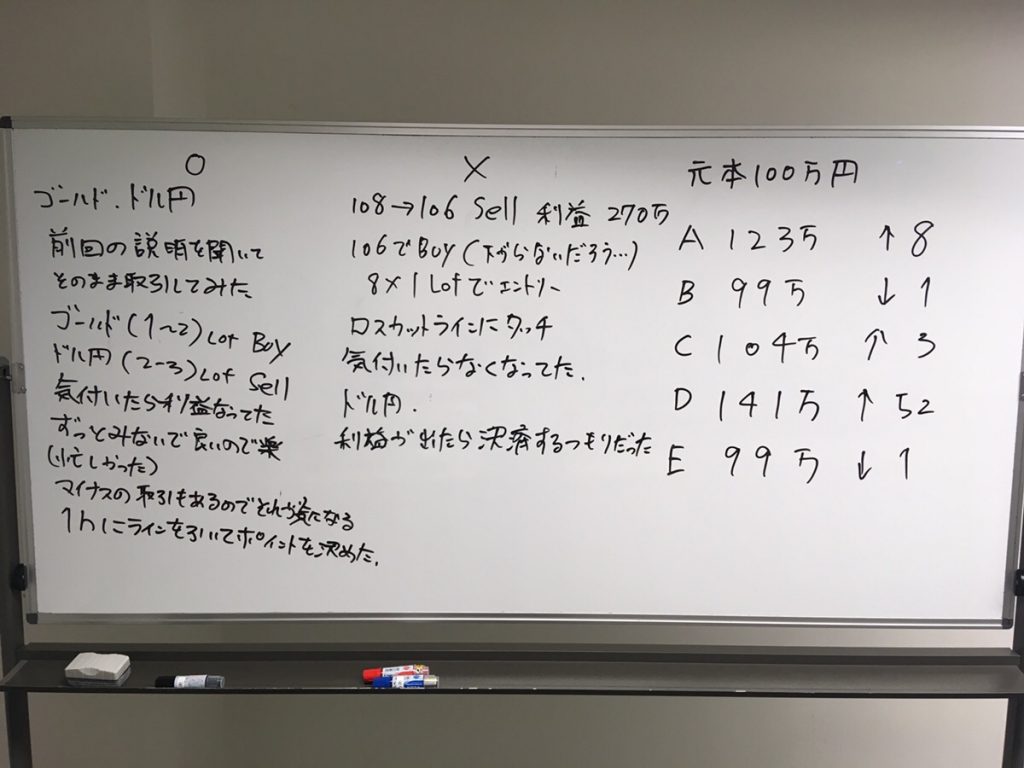 ○
ゴールド.ドル円
前回の説明を聞いて
そのまま取引してみた
ゴールド(1~2)Lot Buy
ドル円(2-3)Lot Sell
気付いたら利益なってた
ずっとみないで良いので楽
(忙しかった)
マイナスの取引もあるのでそれが気になる
1hにラインを引いてポイントを決めた.
×
108→106 Sell 利益 270万
106でBuy(下がらないだろう…)
8×1 Lotでエントリー
ロスカットラインにタッチ
気付いたらなくなってた.
ドル円.
利益が出たら決済するつもりだった
元本100万円
A 123万 ↑8
B 99万 ↓1
C 104万 ↑3
D 141万 ↑52
E 99万 ↓1